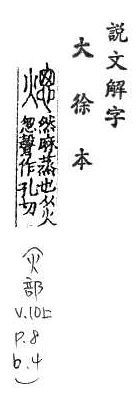 説文解字
大徐本
熜
然麻蒸也从火
悤聲作孔切
(火部
v.10上
p.8
b.4)